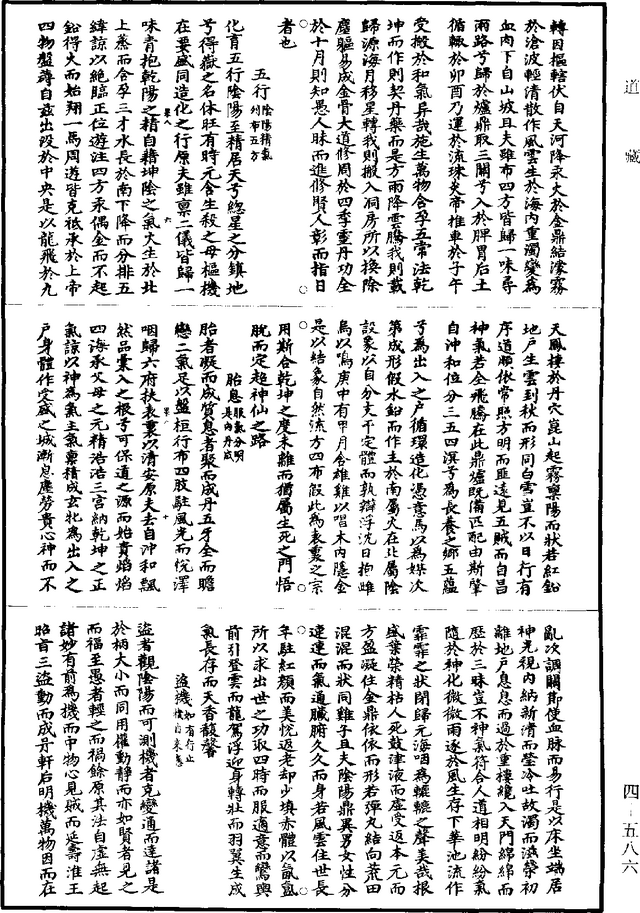 道藏
四-五八六
轉因掆轄伏自天河降汞大於金鼎結濛霧
於滄波輕清散作風雲生於海内重濁變為
血肉下自山坡且夫雖布四方皆歸一味尋
兩路兮歸於爐鼎取三關兮入於脾胃后土
循轍於卯酉乃運於流珠炎帝推車於子午
受搬於和氣异哉施生萬物含孕五常法乾
坤而作則契丹藥而是方雨降雲騰我則載
歸源海月移星轉我則搬入洞房所以換除
塵軀易成金骨大道修周於四季靈丹功全
於十月則知愚人昧而進修賢人彰而指日
者也
五行陰陽精氣列布五方
化育五行陰陽至精居天兮惚星之分鎮地
兮得嶽之名休旺有時元含生殺之母樞機
在要咸同造化之行原夫雖禀二儀皆歸一
味青抱乾陽之精白藉坤陰之氣大生於北
上蒸而合孕三才水長於南下降而分排五
緯諒以絶臨正位遊注四方汞偶金而不起
鉛得火而始翔一馬周遊皆克祗承於上帝
四物盤薄自兹出没於中央是以龍飛於九
天鳳棲於丹穴崑山起霧與陽而狀若紅鉛
地戸生雲到秋而形同白雪豈不以日行有
序道順依常照方明而匪遠見五賊而自昌
神氣若全飛騰在此鼎爐既備匹配由斯肇
自沖和位分三五四溟兮為長養之鄉五藴
兮為出入之户循環造化憑意馬以為媒次
第成形假水鉛而作主於南屬火在北屬陰
設象以自分支干定體而孰辯浮沈日抱雌
烏以鳴庚中有甲月含雄雞以唱木内隱金
是以結象自然流方四布假此為表裏之宗
用斯合乾坤之度未離而猶屬生死之門悟
脱而定超神仙之路
胎息服氣分明是内丹成
胎者凝而成質息者聚而成丹五牙全而瞻
戀二氣足以盤桓行布四肢駐風光而悦澤
咽歸六府扶表裏以清安原夫去自沖和飄
然品彙入之根兮可保道之源而始貴焰焰
四海承父母之元精浩浩三宫納乾坤之正
氣諒以神為氣主氣禀精成玄牝為出入之
户身體作受盛之城漸息塵勞貴心神而不
亂次調關節使血脉而易行是以床坐端居
神光視内納新清而瑩冷吐故濁而渙榮初
離地戸息息而過於重樓纔入天門綿綿而
歷於三昧豈不神氣符合人道相明紛紛氣
隨於神化微微雨逐於風生存下華池流作
霏霏之狀閉歸元海咽為轆轆之聲美哉根
盛葉榮精枯人死鼓津液而虚受返本元而
方盈凝住金鼎依依而形若彈丸結向荒田
混混而狀同雞子且夫陰陽鼎異男女性分
速運而氣通臟腑久久而身若風雲住世長
年駐紅顔而美悦返老却少填赤體以氤氲
所以求出世之功取四時而服適意而鸞輿
前引登雲而龍駕浮迎身轉壯而羽翼生成
氣長存而天香馥馨
盗者觀陰陽而可測機者克變通而達諸是
於柄大小而同用權動靜而亦如賢者見之
而福至愚者輕之而禍餘原其法自虚無起
諸妙有前為機而中物心見賊而延壽淮王
昭首三盗動而成丹軒后明機萬物因而在